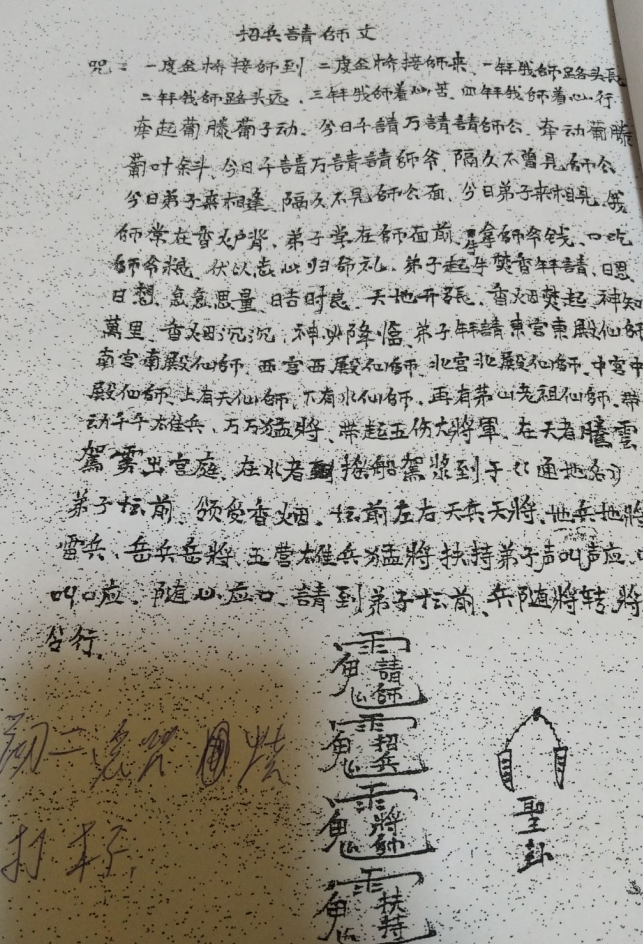 招兵請師文
咒：一度金桥接師到 二度金桥接師来、一拜我師路头長
二拜我師路头远、三拜我師着心苦、四拜我師着心行、
牵起葡藤葡子动、今日千請万請請師公、牵动葡藤
葡叶斜、今日千請万請請師爷、隔久不曾見師公
今日弟子来相逢、隔久不見師公面、今日弟子来相見、我
師常在香炉背、弟子常在師面前、拿師爷钱、口吃
師爷粮、伏以志心归命礼、弟子起手焚香拜請、日思
日想、急意思量、日吉时良、天地开張、香烟焚起、神知
萬里、香烟沉沉、神必降临、弟子拜請東宫東殿仙師
南宫南殿仙師、西宫西殿仙師、北宫北殿仙師、中宫中
殿仙師、上有天仙師、下有水仙師、再有茅山老祖仙師、带
动千千雄兵、万万猛將、带起五伤大將軍、在天者騰雲
駕雾出宫庭、在水者摇船駕浆到于《《通地名》
弟子坛前、领受香烟、坛前左右天兵天將、地兵地將
雷兵、岳兵岳將、五营雄兵猛將扶持弟子声叫声应、口
叫口应、随心应口、請到弟子坛前、兵随將转、將
令行、
請師
招兵
將師
扶持
聖卦